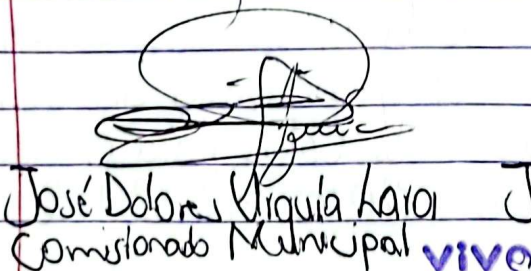 José Dolores Urquía Lara J
Comisionado Municipal vive